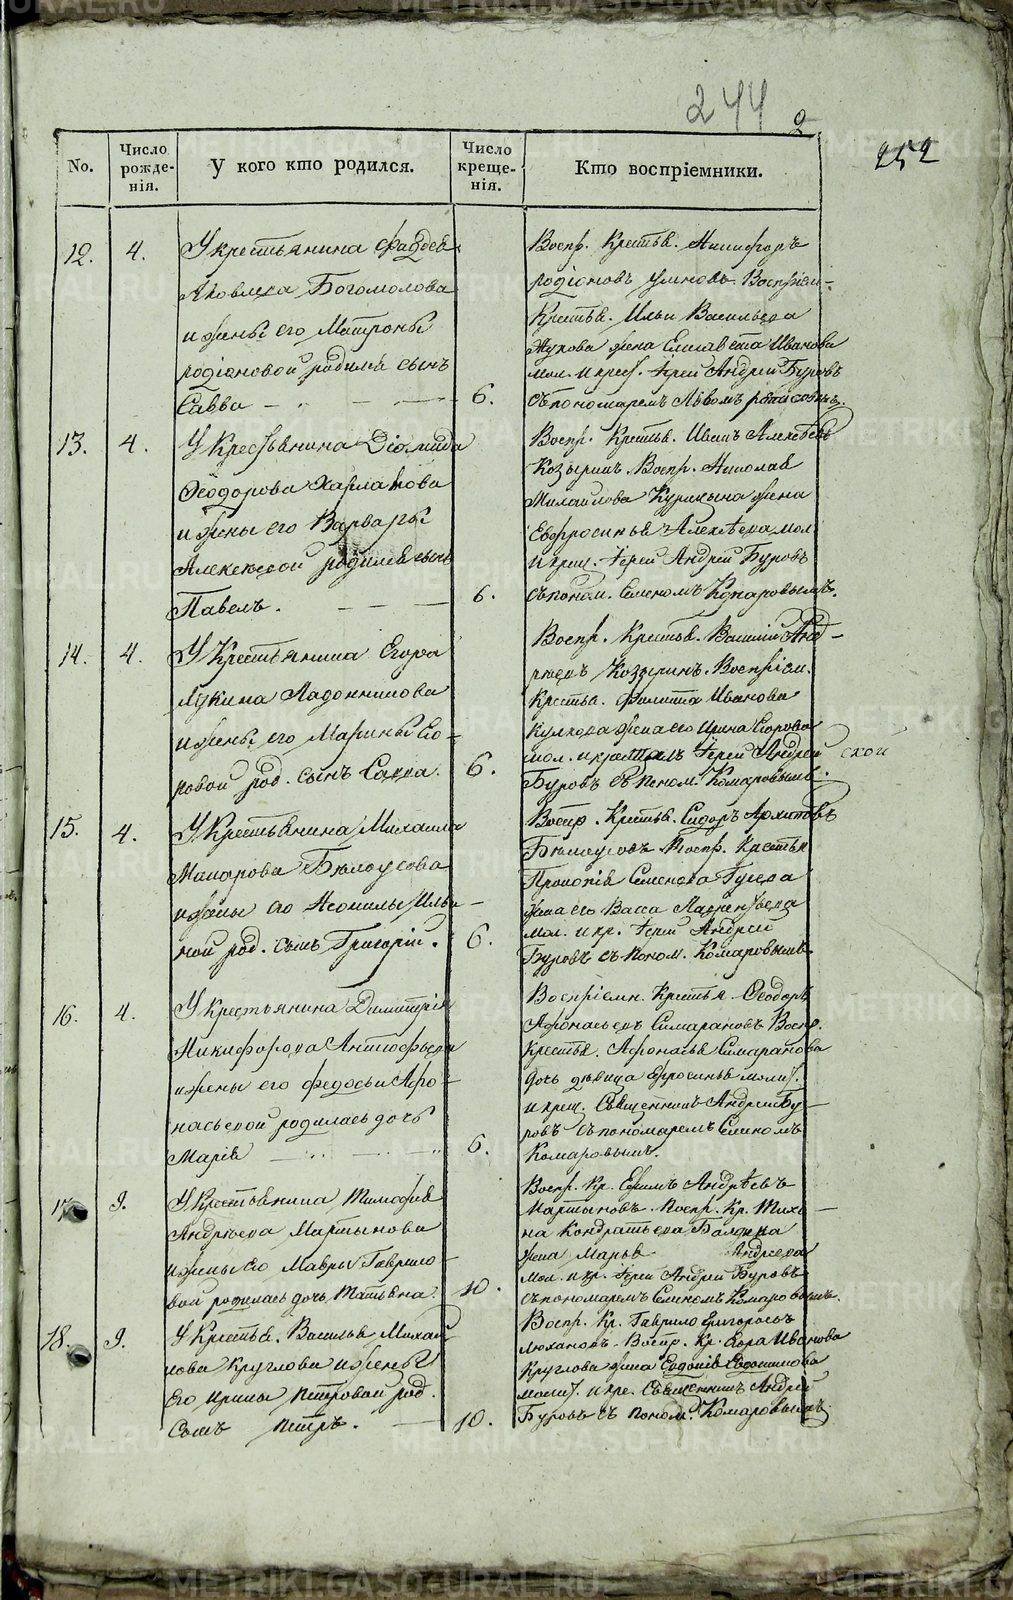 METRIKI.GASO-URAL.RU
244
2
252
No.
Число рожденія.
У кого кто родился.
Число крещенія.
Кто воспріемники.
12.
4.
У крестьянина Фаддея
Яковлева Богомолова
и жены его Матроны
родіоновой родился сынъ
Савва
6.
Воспр. Крестья. Никифоръ
родіоновъ Воспріем.
Крестья. Ильи Васильева
жена Елисавета Иванова
мол. и крес. Іерей Андрей Буровъ
съ пономаремъ Львомъ
13.
4.
У Крестьянина Діомида
Ѳеодорова Харламова
и жены его Варвары
Алексѣевой родился сынъ
Павелъ.
6.
Воспр. Крестья. Иванъ Алексѣевъ
Козыринъ. Воспр. Николая
Михаилова Курицына жена
Евфросинья Алексѣева мол.
и крещ. Іерей Андрей Буровъ
съ поном. Семеномъ Комаровымъ.
14.
4.
У Крестьянина Егора
Лукина Ладонникова
и жены его Марины Его-
ровой род. сынъ Савва.
6.
Воспр. Крестья. Василій Анд-
реевъ Козыринъ. Воспріем.
Крестья. Филиппа Иванова
Куликова жена его Ирина Егорова
мол. и крестилъ Іерей Андрей
Буровъ съ поном. Комаровымъ.
ской
15.
4.
У Крестьянина Михаила
Макарова Бѣлоусова
и жены его Неонилы Ильи-
ной род. сынъ Григорій.
6.
Воспр. Крестья. Сидоръ Архиповъ
Бѣлоусовъ Воспр. Крестья
Прокопія Семенова Гусева
жена его Васса Лаврентьева
мол. и кр. Іерей Андрей
Буровъ съ поном. Комаровымъ.
16.
4.
У Крестьянина Димитрія
Никифорова Антофьева
и жены его Федосьи Афо-
насьевой родилась дочь
Марія
6.
Воспріемн. Крестья Ѳеодоръ
Афонасьевъ Симарановъ Воспр.
Крестья. Афонасья Симаранова
дочь дѣвица Ефросинья молит.
и крещ. Священникъ Андрей Бу-
ровъ съ пономаремъ Семеномъ
Комаровымъ.
17
9.
У Крестьянина Тимофея
Андреева Мартынова
и жены его Мавры Гаврило-
вой родилась дочь Татьяна.
10.
Воспр. Кр. Ефимъ Андрѣевъ
Мартыновъ. Воспр. Кр. Тихо-
на Кондратьева
жена Марья Андреева
мол. и кр. Іерей Андрей Буровъ
съ пономаремъ Семеномъ Комаровымъ.
18.
9.
У Крестья. Василья Михай
лова Круглова и жены
Его Ирины Петровой род.
Сынъ Петръ.
10.
Воспр. Кр. Гаврило Григорьевъ
Воспр. Кр. Егора Иванова
Круглова жена Евдокія Евдокимова
молит. и кре. Священникъ Андрей
Буровъ съ поном. Комаровымъ.